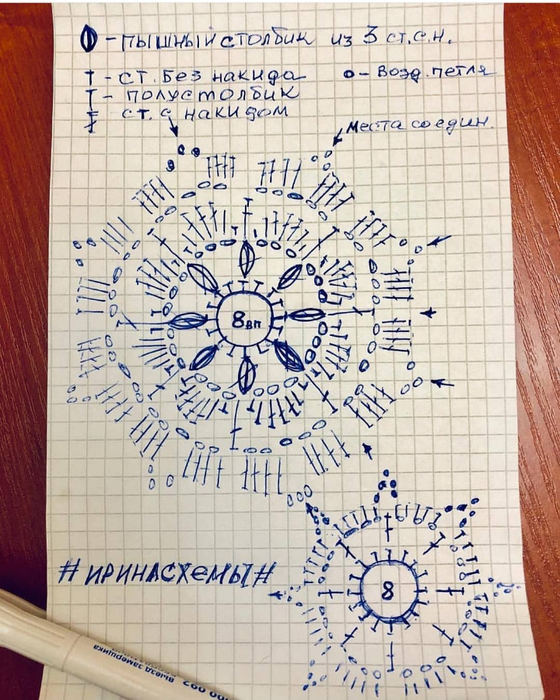 - пышный столбик из 3 ст.с.н.
- ст. без накида
о - возд. петля
- полустолбик
ст. с накидом
места соедин.
8вп
8
#ИРИНАСХЕМЫ#
Выезд замерщика